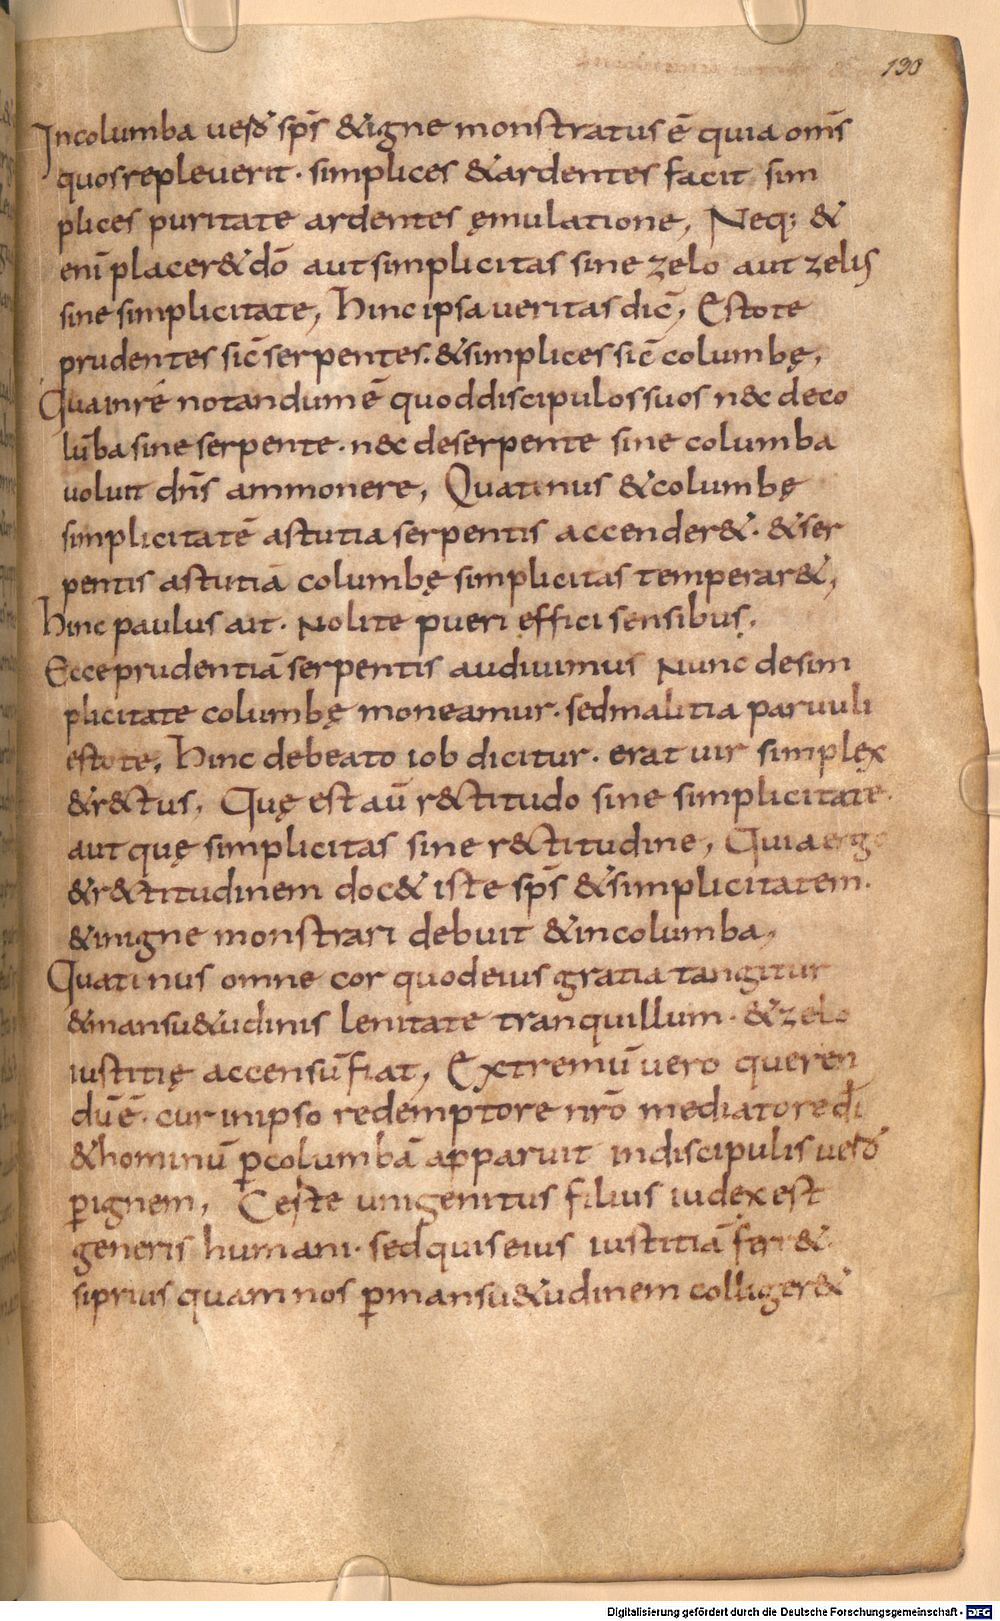 130
Incolumba uero sps̄ &igne monstratus ē quia oms̄
quosrepleuerit · simplices &ardentes facit sim
plices puritate ardentes ęmulatione, Neq; &
eni̅ placer&do̅ aut simplicitas sine zelo aut zelus
sine simplicitate, hinc ipsa ueritas dic̅, Estote
prudentes sic̅ serpentes. &simplices sic̅ columbę,
Quainre̅ notandum ē quod discipulos suos n&c deco
lu̅ba sine serpente · n&c deserpente sine columba
uoluit dn̅s ammonere, Quatinus &columbę
simplicitate̅ astutia serpentis accender&· &ser
pentis astutia̅ columbę simplicitas temperar&,
hinc paulus ait · Nolite pueri effici sensibus,
Ecce prudentia̅ serpentis audiuimus Nunc desim
plicitate columbę moneamur · sed malitia paruuli
estote, hinc debeato iob dicitur · erat uir simplex
&r&ctus, Quę est au̅ r&ctitudo sine simplicitate·
aut quę simplicitas sine r&ctitudine, Quia ergo
&r&ctitudinem doc& iste sps̄ &simplicitatem·
&inigne monstrari debuit &incolumba,
Quatinus omne cor quodeius gratia tangitur
&mansu&udinis lenitate tranquillum · &zelo
iustitię accensu̅ fiat, Extremu̅ uero queren
du̅ ē · cur inipso redemptore nr̅o mediatore di̅
&hominu̅ ꝑcolumba̅ apparuit indiscipulis uero
ꝑignem, Certe unigenitus filius iudex est
generis humani · sed quis eius iustitia̅ ferr&·
siprius quam nos ꝑmansu&udinem colliger&
Digitalisierung gefördert durch die Deutsche Forschungsgemeinschaft - DFG